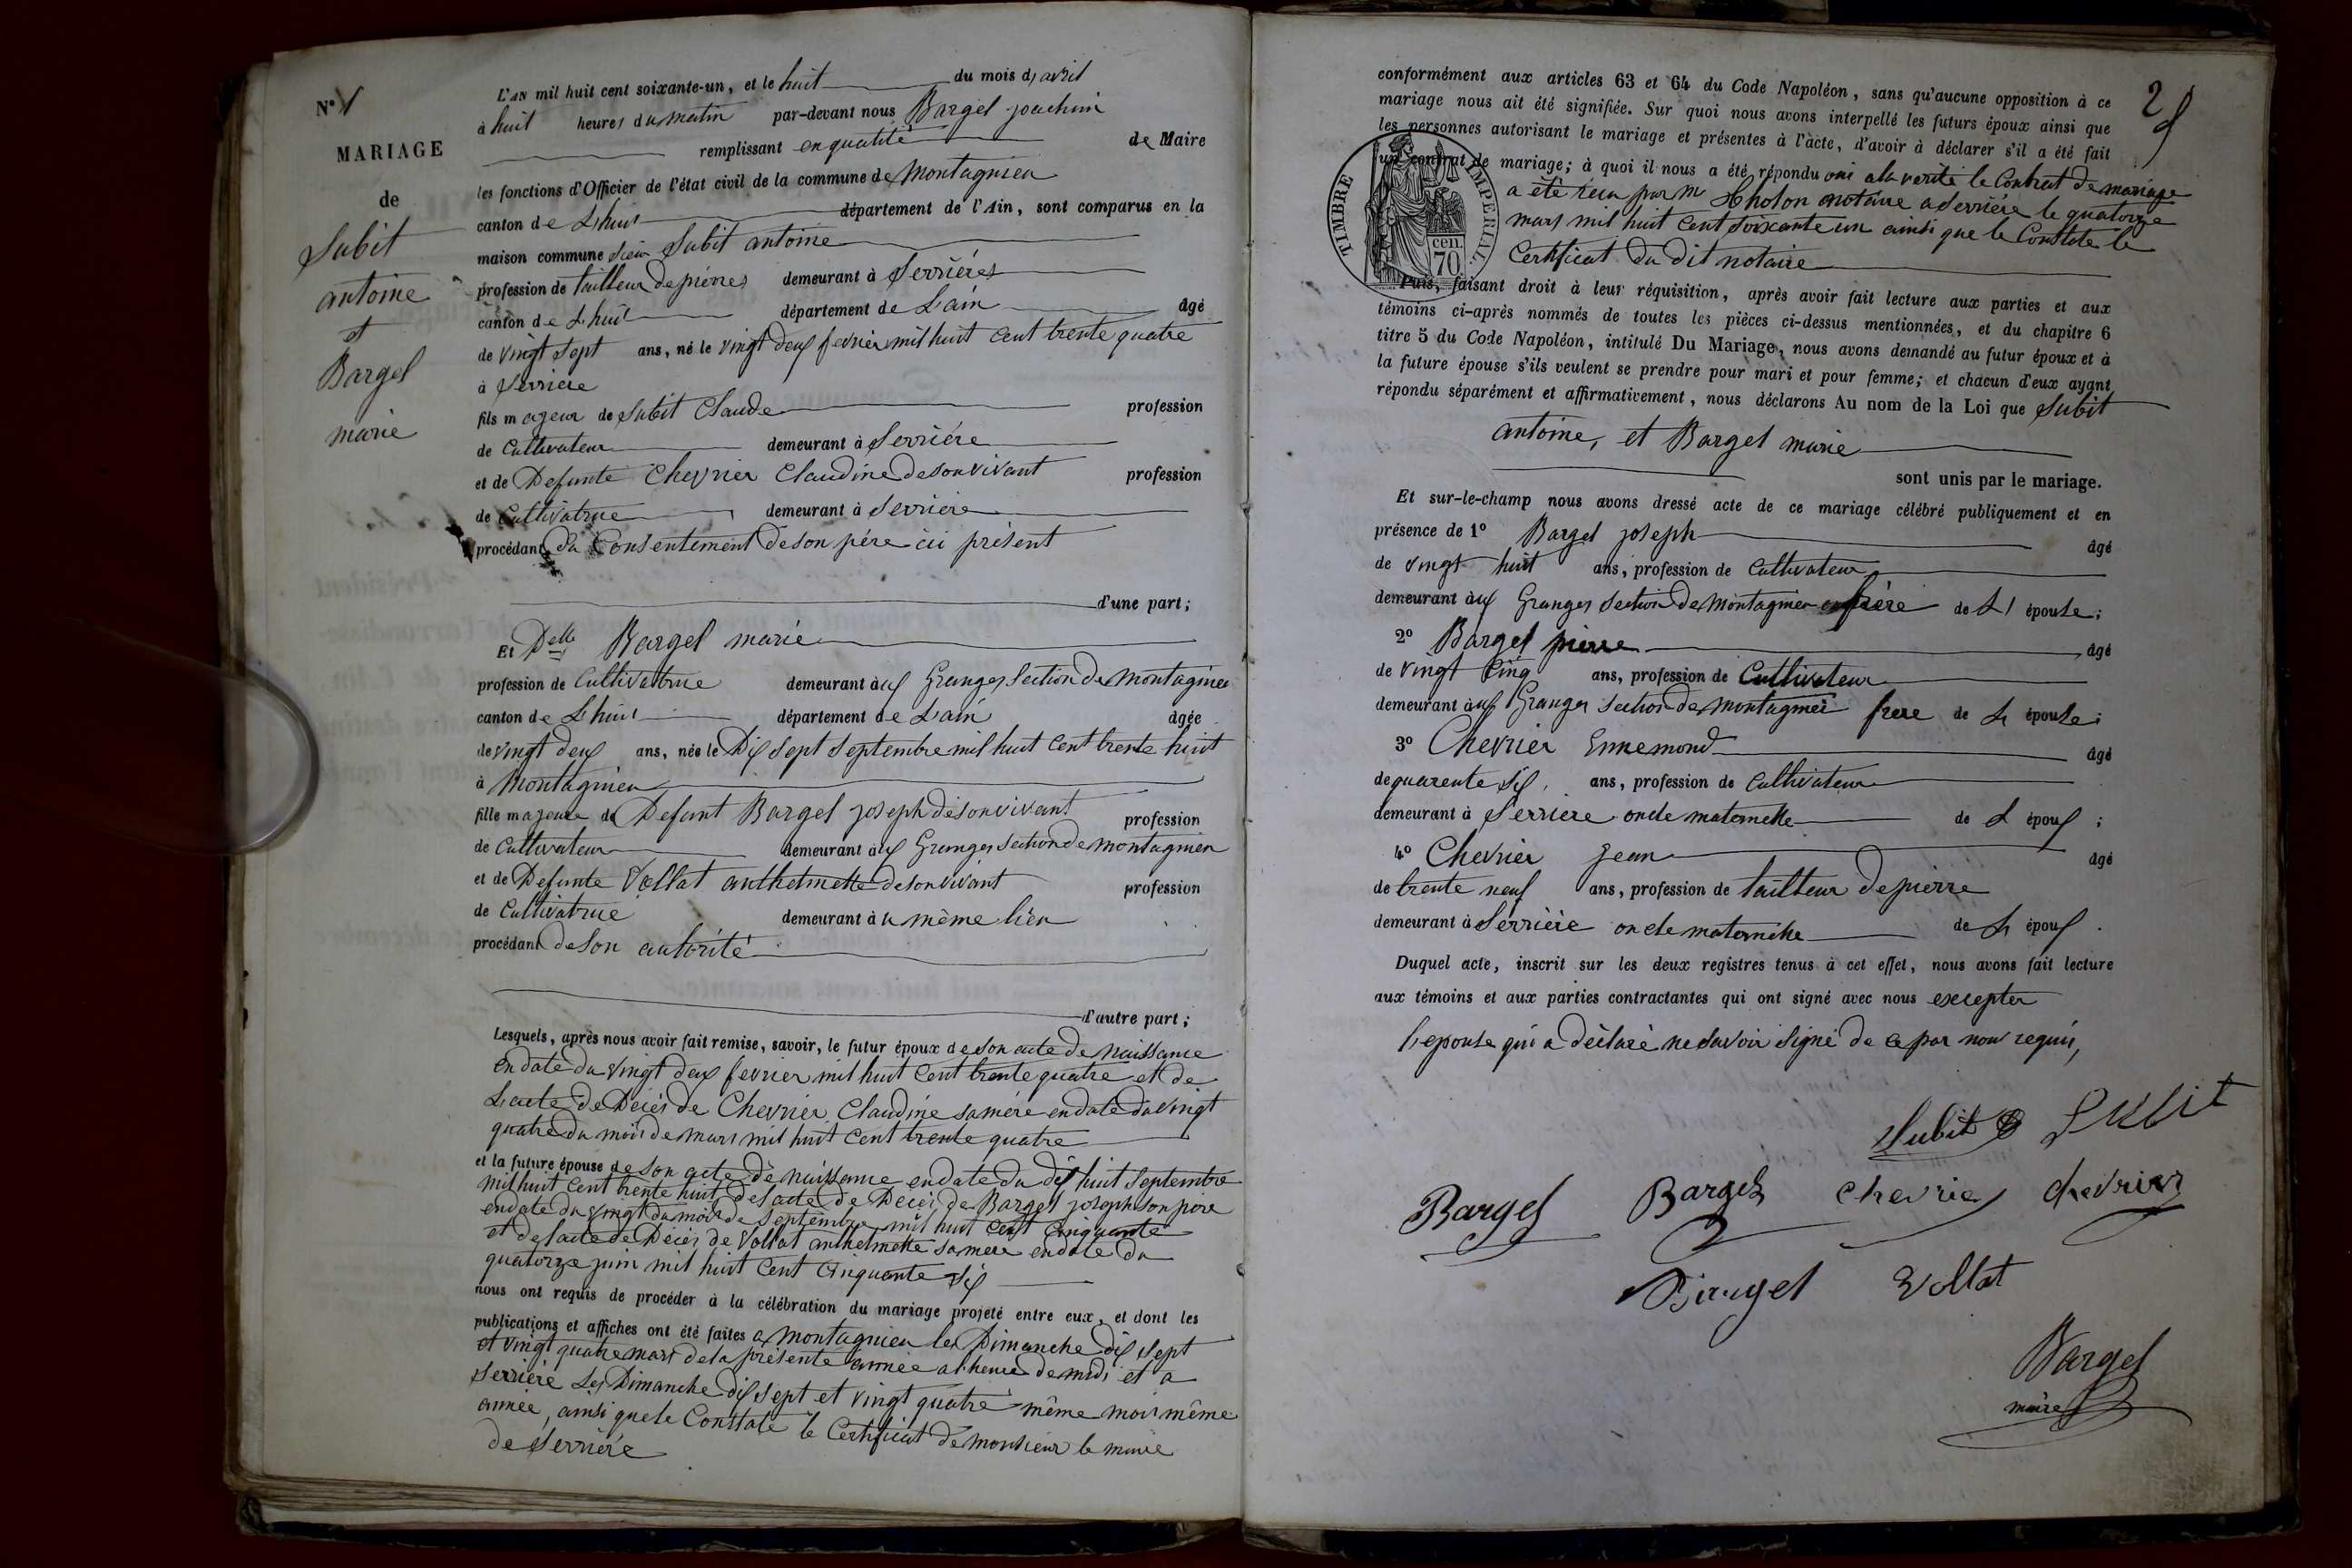 N° 1
MARIAGE
de
Subit
antoine
et
Bargel
marie
L'AN mil huit cent soixante-un, et le huit du mois d'avril
à huit heures du matin par-devant nous Bargel joachim
remplissant en qualité de Maire
les fonctions d'Officier de l'état civil de la commune de Montagnieu
canton de Lhuis département de l'Ain, sont comparus en la
maison commune sieur Subit antoine
profession de tailleur de pierres demeurant à Serrières
canton de Lhuis département de L'ain âgé
de vingt sept ans, né le vingt deux fevrier mil huit cent trente quatre
à Serriere
fils majeur de Subit Claude profession
de Cultivateur demeurant à Serriére
et de Defunte Chevrier Claudine de son vivant profession
de Cultivatrice demeurant à Serriere
procédant du Consentement de son pére ici présent
d'une part;
Et Delle Bargel marie
profession de Cultivatrice demeurant aux Granges section de montagnieu
canton de Lhuis département de L'ain âgée
de vingt deux ans, née le Dix sept septembre mil huit cent trente huit
à Montagnieu
fille majeure de Defunt Bargel joseph de son vivant profession
de Cultivateur demeurant aux Granges section de montagnieu
et de Defunte Vollat anthelmette de son vivant profession
de Cultivatrice demeurant au même lieu
procédant de son autorité
d'autre part;
Lesquels, après nous avoir fait remise, savoir, le futur époux de son acte de Naissance
en date du vingt deux fevrier mil huit cent trente quatre et de
L'acte de Décés de Chevrier Claudine sa mére en date du vingt
quatre du mois de mars mil huit cent trente quatre
et la future épouse de son acte de naissance en date du dix huit septembre
mil huit cent trente huit, de l'acte de Décés de Bargel joseph son pére
en date du vingt du mois de septembre mil huit cent cinquante
et de l'acte de Décés de Vollat anthelmette sa mere en date du
quatorze juin mil huit cent cinquante six
nous ont requis de procéder à la célébration du mariage projeté entre eux, et dont les
publications et affiches ont été faites a montagnieu les Dimanche dix sept
et vingt quatre mars de la présente année a l'heure de midi et a
Serriére Les Dimanche dix sept et vingt quatre même mois même
année, ainsi que le Constate le Certificat de monsieur le maire
de Serriére
2
conformément aux articles 63 et 64 du Code Napoléon, sans qu'aucune opposition à ce
mariage nous ait été signifiée. Sur quoi nous avons interpellé les futurs époux ainsi que
les personnes autorisant le mariage et présentes à l'acte, d'avoir à déclarer s'il a été fait
un contrat de mariage; à quoi il nous a été répondu oui a la verité le Contrat de mariage
a été recu par me Cholon notaire a Serriére le quatorze
mars mil huit cent soixante un ainsi que le Constate le
Certificat du dit notaire
TIMBRE IMPERIAL
cen.
70
Puis, faisant droit à leur réquisition, après avoir fait lecture aux parties et aux
témoins ci-après nommés de toutes les pièces ci-dessus mentionnées, et du chapitre 6
titre 5 du Code Napoléon, intitulé Du Mariage, nous avons demandé au futur époux et à
la future épouse s'ils veulent se prendre pour mari et pour femme; et chacun d'eux ayant
répondu séparément et affirmativement, nous déclarons Au nom de la Loi que Subit
antoine, et Bargel marie
sont unis par le mariage.
Et sur-le-champ nous avons dressé acte de ce mariage célébré publiquement et en
présence de 1° Bargel joseph âgé
de vingt huit ans, profession de Cultivateur
demeurant aux Granges section de montagnieu frère de L' épouse;
2° Bargel pierre âgé
de vingt cinq ans, profession de Cultivateur
demeurant aux Granges section de montagnieu frere de L' épouse;
3° Chevrier Ennemond âgé
de quarente six, ans, profession de Cultivateur
demeurant à Serriere oncle maternelle de L' époux;
4° Chevrier Jean âgé
de trente neuf ans, profession de tailleur de pierre
demeurant à Serrière oncle maternelle de L' époux.
Duquel acte, inscrit sur les deux registres tenus à cet effet, nous avons fait lecture
aux témoins et aux parties contractantes qui ont signé avec nous excepter
l'epouse qui a déclaré ne savoir signé de ce par nous requis,
Subit Subit
Bargel Bargel chevrier chevrier
Bargel Vollat
Bargel
maire